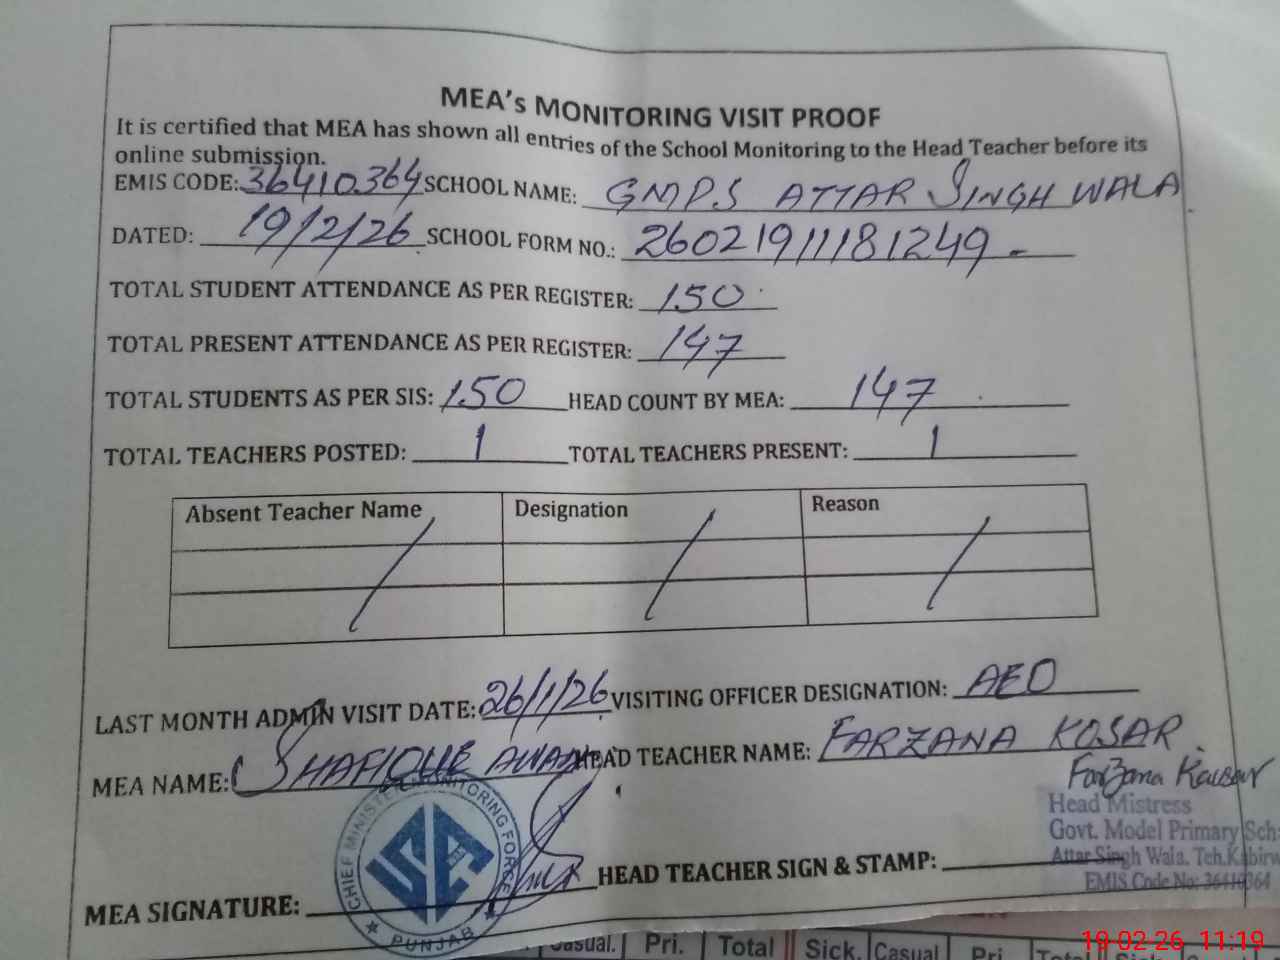 MEA's MONITORING VISIT PROOF
It is certified that MEA has shown all entries of the School Monitoring to the Head Teacher before its
online submission.
EMIS CODE: 36410364 SCHOOL NAME: GMPS ATTAR SINGH WALA
DATED: 19/2/26 SCHOOL FORM NO.: 26021911181249
TOTAL STUDENT ATTENDANCE AS PER REGISTER: 150
TOTAL PRESENT ATTENDANCE AS PER REGISTER: 147
TOTAL STUDENTS AS PER SIS: 150 HEAD COUNT BY MEA: 147
TOTAL TEACHERS POSTED: 1 TOTAL TEACHERS PRESENT: 1
Absent Teacher Name Designation Reason
LAST MONTH ADMIN VISIT DATE: 26/1/26 VISITING OFFICER DESIGNATION: AEO
MEA NAME: SHAFIQUE AWAN HEAD TEACHER NAME: FARZANA KOSAR
Farzana Kausar
Head Mistress
Govt. Model Primary Sch
Attar Singh Wala. Teh. Kabirw
EMIS Code No: 36410364
HEAD TEACHER SIGN & STAMP:
MEA SIGNATURE:
CHIEF MINISTER MONITORING FORCE
PUNJAB
Casual. Pri. Total Sick. Casual Pri. Total
19-02-26 11:19